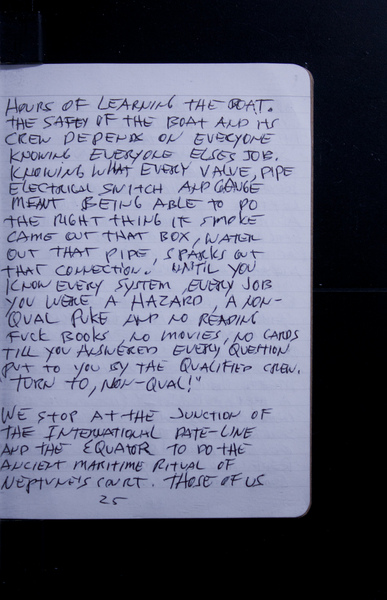 HOURS OF LEARNING THE BOAT.
THE SAFETY OF THE BOAT AND ITS
CREW DEPENDS ON EVERYONE
KNOWING EVERYONE ELSES JOB.
KNOWING WHAT EVERY VALVE, PIPE
ELECTRICAL SWITCH AND GAUGE
MEANT BEING ABLE TO DO
THE RIGHT THING IF SMOKE
CAME OUT THAT BOX, WATER
OUT THAT PIPE, SPARKS OUT
THAT CONNECTION. UNTIL YOU
KNOW EVERY SYSTEM, EVERY JOB
YOU WERE A HAZARD, A NON-
QUAL PUKE AND NO READING
FUCK BOOKS, NO MOVIES, NO CARDS
TILL YOU ANSWERED EVERY QUESTION
PUT TO YOU BY THE QUALIFIED CREW.
"TURN TO, NON-QUAL!"
WE STOP AT THE JUNCTION OF
THE INTERNATIONAL DATE-LINE
AND THE EQUATOR TO DO THE
ANCIENT MARITIME RITUAL OF
NEPTUNE'S COURT. THOSE OF US
25